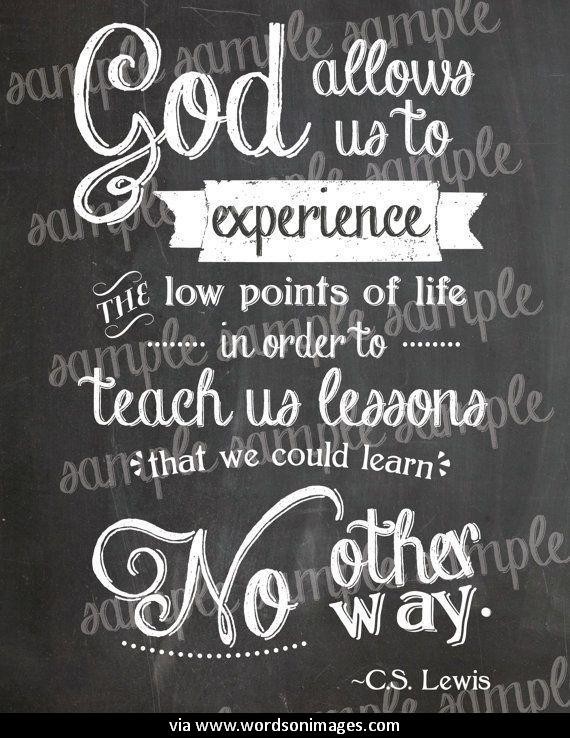 God allows
us to
experience
THE low points of life
in order to
teach us lessons
that we could learn
No other
way.
~C.S. Lewis
sample sample sample
sample sample sample
sample sample sample
sample sample sample
sample sample sample
sample
via www.wordsonimages.com